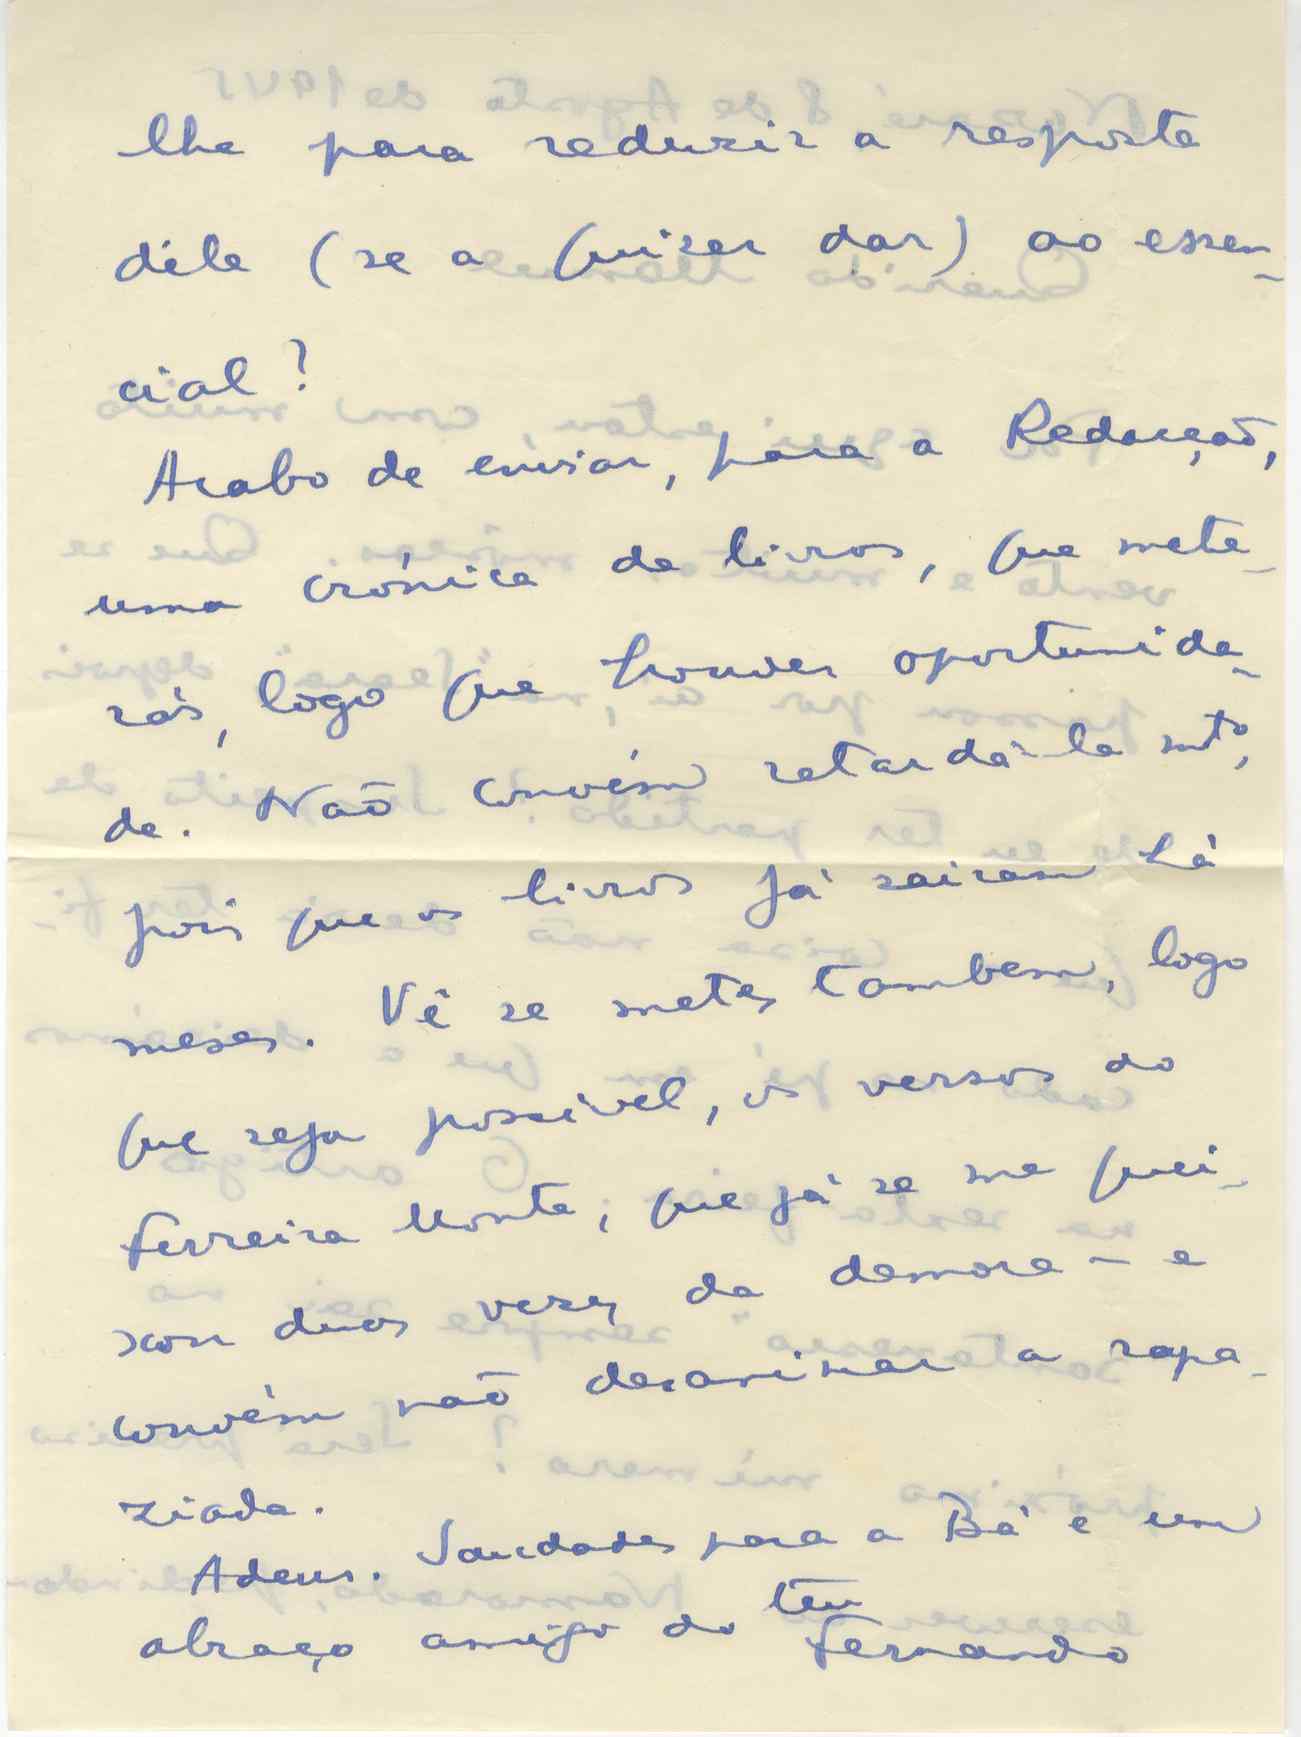 lhe para reduzir a resposta
dêle (se a quiser dar) ao essen-
cial?
Acabo de enviar, para a Redacção,
uma crónica de livros, que mete-
rás, logo que houver oportunida-
de. Não convém retardá-la mto,
pois que os livros já sairam há
meses. Vê se metes tambem, logo
que seja possivel, os versos do
Ferreira Monte, que já se me quei-
xou duas vezes da demora — e
convém não desanimar a rapa-
ziada.
Adeus. Saudades para a Bá e um
abraço amigo do teu
Fernando